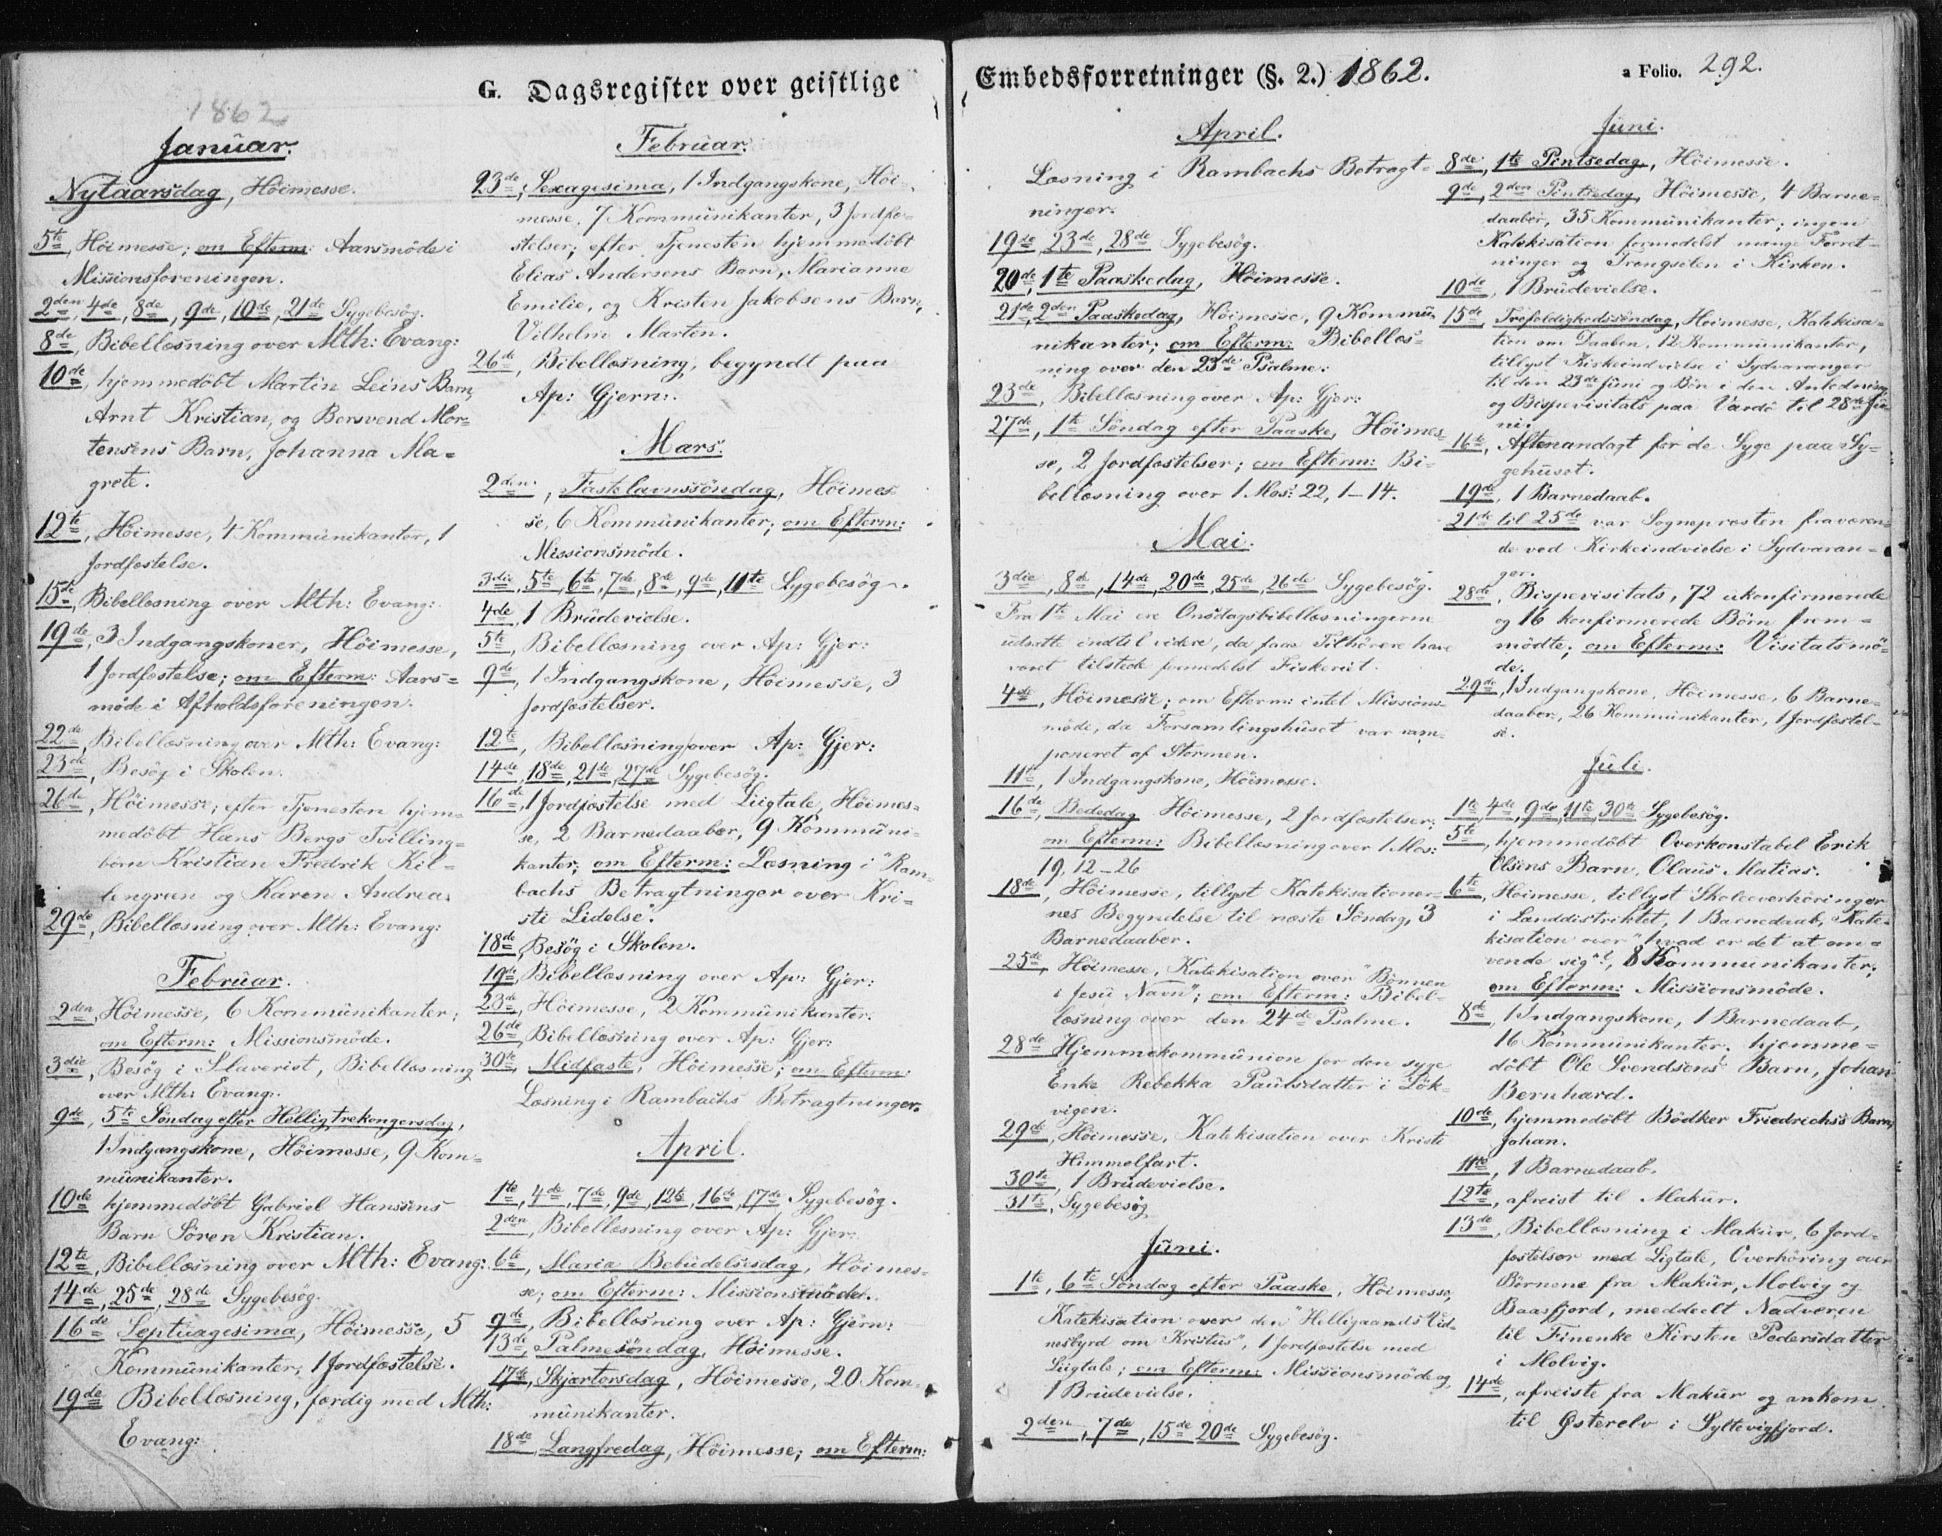 G. Dagsregister over geistlige
1862
Januar.
Nytaarsdag, Höimesse.
5te, Höimesse; om Efterm: Aarsmöde i
Missionsforeningen.
2den, 4de, 8de, 9de, 10de, 21de Sygebesög.
8de, Bibellæsning over Mth: Evang:
10de, hjemmedöbt Martin Leins Barn,
Arnt Kristian, og Bersvend Mor-
tensens Barn, Johanna Ma-
grete.
12te, Höimesse, 4 Kommunikanter, 1
Jordfæstelse.
15de, Bibellæsning over Mth: Evang:
19de, 3 Indgangskoner, Höimesse,
1 Jordfæstelse; om Efterm: Aars-
möde i Afholdsforeningen.
22de, Bibellæsning over Mth: Evang:
23de, Besög i Skolen.
26de, Höimesse; efter Tjenesten hjem-
medöbt Hans Bergs Tvilling-
börn Kristian Fredrik Kil-
lengreen og Karen Andrea.
29de, Bibellæsning over Mth: Evang:
Februar.
2den, Höimesse, 6 Kommunikanter;
om Efterm: Missionsmöde.
3die, Besög i Slaveriet, Bibellæsning
over Mth: Evang:
9de, 5te Söndag efter Helligtrekongersdag,
1 Indgangskone, Höimesse, 9 Kom-
munikanter.
10de hjemmedöbt Gabriel Hanssens
Barn Sören Kristian.
12te, Bibellæsning over Mth: Evang:
14de, 25de, 28de Sygebesög.
16de Septuagesima, Höimesse, 5
Kommunikanter, 1 Jordfæstelse.
19de Bibellæsning, færdig med Mth:
Evang:
Februar.
23de, Sexagesima, 1 Indgangskone, Höi-
messe, 7 Kommunikanter, 3 Jordfæ-
stelser; efter Tjenesten hjemmedöbt
Elias Andersens Barn, Marianne
Emilie, og Kristen Jakobsens Barn,
Vilhelm Martin.
26de, Bibellæsning, begyndt paa
Ap: Gjern:.
Mars.
2den, Fastelavnssöndag, Höimes-
se, 6 Kommunikanter; om Efterm:
Missionsmöde.
3die, 5te, 6te, 7de, 8de, 9de, 11te Sygebesög.
4de, 1 Brudevielse.
5te, Bibellæsning over Ap: Gjer:
9de, 1 Indgangskone, Höimesse, 3
Jordfæstelser.
12te, Bibellæsning over Ap: Gjer:
14de, 18de, 21de, 27de Sygebesög.
16de, 1 Jordfæstelse med Liigtale, Höimes-
se, 2 Barnedaaber, 9 Kommuni-
kanter; om Efterm: Læsning i "Ram-
bachs Betragtninger over Kri-
sti Lidelse".
18de, Besög i Skolen.
19de, Bibellæsning over Ap: Gjer:
23de, Höimesse, 2 Kommunikanter.
26de, Bibellæsning over Ap: Gjer:
30te, Midfaste, Höimesse; om Efterm:
Læsning i Rambachs Betragtninger.
April.
1te, 4de, 7de, 9de, 12te, 16de, 17de, Sygebesög.
2den, Bibellæsning over Ap: Gjer:
6te, Mariæ Bebudelsesdag, Höimes-
se; om Efterm: Missionsmöde.
9de, Bibellæsning over Ap: Gjern:
13de, Palmesöndag, Höimesse.
17de, Skjærtorsdag, Höimesse, 20 Kom-
munikanter.
18de, Langfredag, Höimesse; om Efterm:
Embedsforretninger (§. 2.) 1862.
a Folio. 292.
April.
Læsning i Rambachs Betragt-
ninger.
19de, 23de, 28de Sygebesög.
20de, 1te Paaskedag, Höimesse.
21de, 2den Paaskedag, Höimesse, 9 Kommu-
nikanter; om Efterm: Bibellæs-
ning over den 23de Psalme.
23de, Bibellæsning over Ap: Gjer:
27de, 1te Söndag efter Paaske, Höimes-
se, 2 Jordfæstelser; om Efterm: Bi-
bellæsning over 1 Mos: 22, 1-14.
Mai.
3die, 8de, 14de, 20de, 25de, 26de Sygebesög.
Fra 1te Mai ere Onsdagsbibellæsningerne
udsatte indtil videre, da faa Tilhörere have
været tilstede formedelst Fiskeriet.
4de, Höimesse; om Efterm: intet Missions-
möde, da Forsamlingshuset var ram-
poneret af Stormen.
11te, 1 Indgangskone, Höimesse.
16de, Bededag Höimesse, 2 Jordfæstelser;
om Efterm: Bibellæsning over 1 Mos:
19, 12-26
18de, Höimesse, tillyst Katekisationer-
nes Begyndelse til næste Söndag, 3
Barnedaaber.
25de, Höimesse, Katekisation over "Bönnen
i Jesu Navn"; om Efterm: Bibel-
læsning over den 24de Psalme.
28de Hjemmekommunion for den syge
Enke Rebekka Paulsdatter i Lök-
vigen.
29de, Höimesse, Katekisation over Kristi
Himmelfart.
30te, 1 Brudevielse.
31te, Sygebesög
Juni.
1te, 6te Söndag efter Paaske, Höimesse,
Katekisation over den "Helligaands Vid-
nesbyrd om Kristus", 1 Jordfæstelse med
Liigtale; om Efterm: Missionsmöde og
1 Brudevielse.
2den, 7de, 15de 20de Sygebesög.
Juni.
8de, 1te Pintsedag, Höimesse.
9de, 2den Pintsedag, Höimesse, 4 Barne-
daaber, 35 Kommunikanter; ingen
Katekisation formedelst mange Forret-
ninger og Trængselen i Kirken.
10de, 1 Brudevielse.
15de, Trefoldighedssöndag, Höimesse, Katekisa-
tion om Daaben, 12 Kommunikanter,
tillyst Kirkeindvielse i Sydvaranger
til den 23de Juni og Bön i den Anledning
og Bispevisitats paa Vardö til 28de Ju-
ni.
16te, Aftenandagt for de Syge paa Sy-
gehuset.
19de, 1 Barnedaab.
21de til 25de var Sognepræsten fraværen-
de ved Kirkeindvielse i Sydvaran-
ger.
28de, Bispevisitats, 72 ukonfirmerede
og 16 konfirmerede Börn frem-
mödte; om Efterm: Visitatsmö-
de.
29de, 1 Indgangskone, Höimesse, 6 Barne-
daaber, 26 Kommunikanter, 1 Jordfæstel-
se.
Juli.
1te, 4de, 9de, 11te, 30te Sygebesög.
5te, hjemmedöbt Overkonstabel Erik
Olsens Barn, Olaus Matias.
6te, Höimesse, tillyst Skoleoverhöringer
i Landdistriktet, 1 Barnedaab, Kate-
kisation over "hvad er det at om-
vende sig", 8 Kommunikanter;
om Efterm: Missionsmöde.
8de, 1 Indgangskone, 1 Barnedaab,
16 Kommunikanter, hjemme-
döbt Ole Svendsens Barn, Johan
Bernhard.
10de, hjemmedöbt Bödker Friedrichs's Barn,
Johan.
11te, 1 Barnedaab.
12te, afreist til Makur.
13de, Bibellæsning i Makur, 6 Jord-
fæstelser med Ligtale, Overhöring over
Börnene fra Makur, Molvig og
Baasfjord, meddeelt Nadveren
til Finenke Kirsten Pedersdatter
i Molvig.
14de, afreiste fra Makur og ankom
til Østerelv i Syltevigfjord.